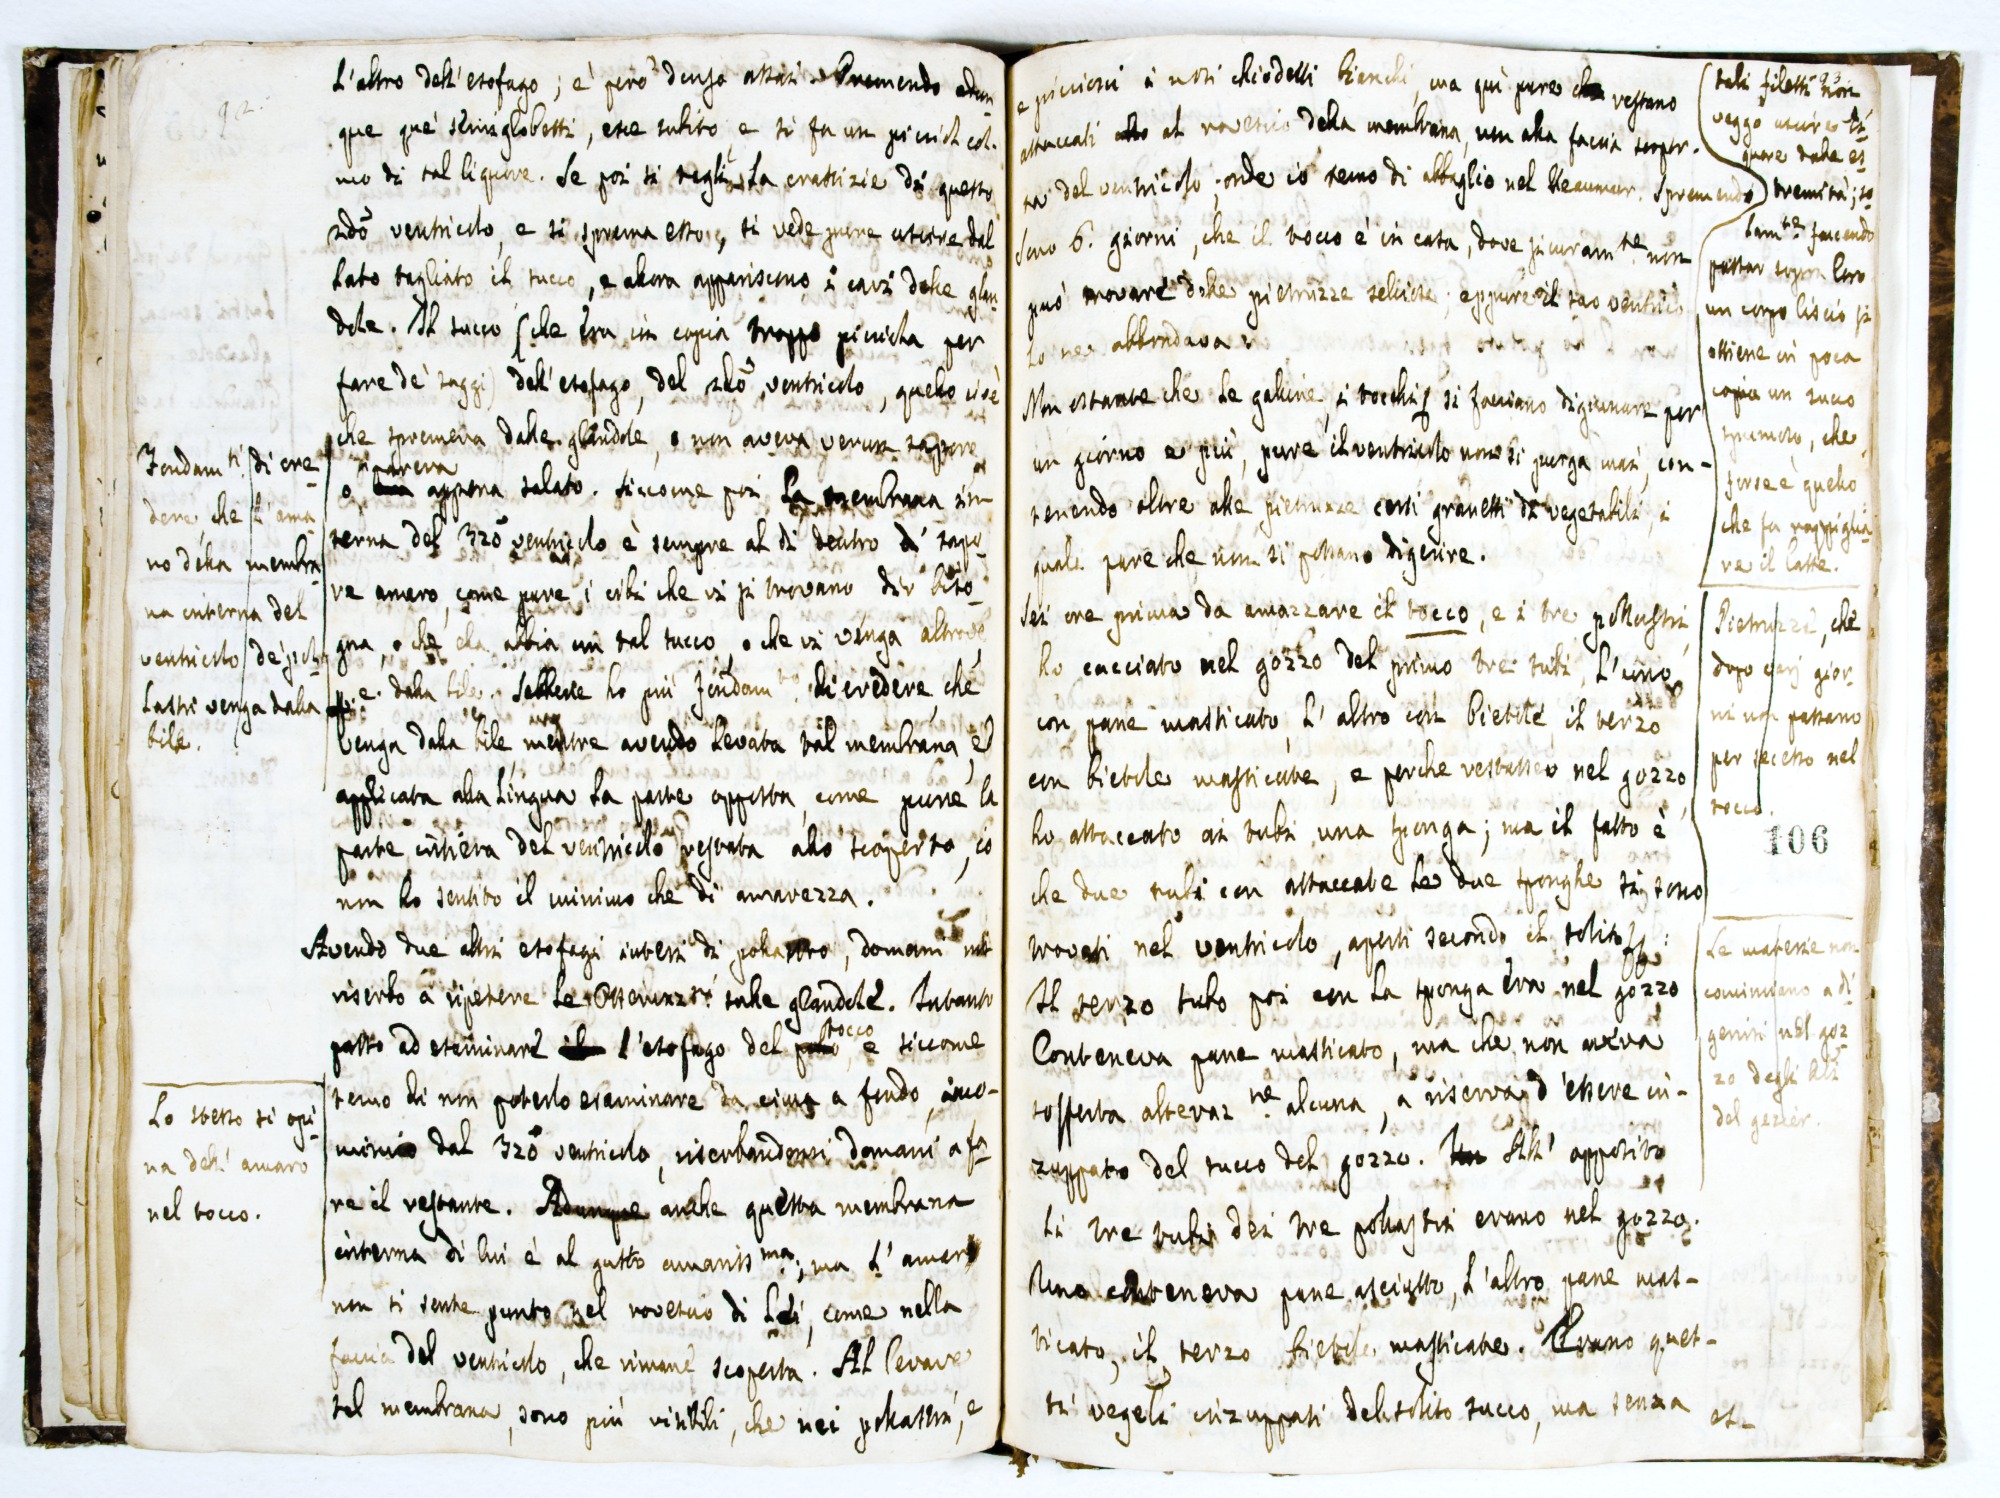 92.
L'altro dell'esofago; e però denso assai. Premendo adun
que que' semiglobetti, esce subito e si fa un picciol col-
mo di tal liquore. Se poi si taglia la crassizie di questo
2do ventricolo, e si sprema esso, si vede pure uscire dal
lato tagliato il succo, e allora appariscono i cavi delle glan
dole. Il succo (che era in copia troppo picciola per
fare de' saggi) dell'esofago, del 2do ventricolo, quello cioè
che spremeva dalle glandole, o non aveva verun sapore
o pareva appena salato. Siccome poi la membrana in
terna del 3zo ventricolo è sempre al di dentro di sapo-
re amaro, come pure i cibi che vi si trovano dir biso-
gna, o che ella abbia un tal succo, o che vi venga altrove,
p. e. dalla bile. Sebbene ho più fondamto di credere, che
venga dalla bile, mentre avendo levata tal membrana, ed
applicata alla lingua la parte opposta, come pure la
parte interna del ventricolo restata allo scoperto, io
non ho sentito il minimo che di amarezza.
Avendo due altri esofagi interi di pollastro, domani mi
riserbo a ripetere le osservazni sulle glandole. Intanto
passo ad esaminare l'esofago del tocco, e siccome
temo di non poterlo esaminare da cima a fondo, inco-
mincio dal 3zo ventricolo, riserbandomi domani a fa
re il restante. Adunque anche questa membrana
interna di lui è al gusto amarissma; ma l'amaro
non si sente punto nel rovescio di lei, come nella
faccia del ventricolo, che rimane scoperta. Al levare
tal membrana, sono più visibili, che nei pollastri, e
Fondamti di cre
dere, che l'ama
no della membra
na interna del
ventricolo de' pol
lastri venga dalla
bile.
Lo stesso si opi
na dell'amaro
nel tocco.
e picciosi i noti chiodelli bianchi, ma qui pure restano
attaccati al rovescio della membrana, non alla faccia scoper-
ta del ventricolo; onde io temo di abbaglio nel Reaumur. Spremendo
Sono 6. giorni, che il tocco è in casa, dove sicuramte non
può trovare delle pietruzze selciose; eppure il suo ventrico
lo ne abbondava.
Non ostante che le galline, i tocchi si facciano digiunare per
un giorno e più, pure il ventricolo non si purga mai, con-
tenendo oltre alle pietruzze certi granelli di vegetabili, i
quali pare che non si possano digerire.
Sei ore prima da amazzare il tocco, e i tre pollastri,
ho cacciato nel gozzo del primo tre tubi, l'uno
con pane masticato, l'altro con bietole, il terzo
con bietole masticate, e perche restassero nel gozzo,
ho attaccato ai tubi una sponga; ma il fatto è
che due tubi con attaccate le due sponghe si sono
trovati nel ventricolo, aperti secondo il solito.
Il terzo tubo poi con la sponga era nel gozzo
Conteneva pane masticato, ma che non aveva
sofferta alterazne alcuna, a riserva d'essere in-
zuppato del succo del gozzo. All' opposito
li tre tubi dei tre pollastri erano nel gozzo.
Uno conteneva pane asciutto, l'altro pane mas-
ticato, il terzo bietole masticate. Erano ques-
ti vegeli inzuppati del solito succo, ma senza
es-
93.
tali filetti non
veggo uscire li
quore dalle es
tremità; so
lamte facendo
passar sopra loro
un corpo liscio si
ottiene in poca
copia un succo
spumoso, che
forse è quello
che fa rappiglia
re il latte.
Pietruzze, che
dopo varj gior
ni non passano
per secesso nel
tocco.
106
Le materie non
cominciano a di
gerirsi nel goz
zo degli
del gezier.